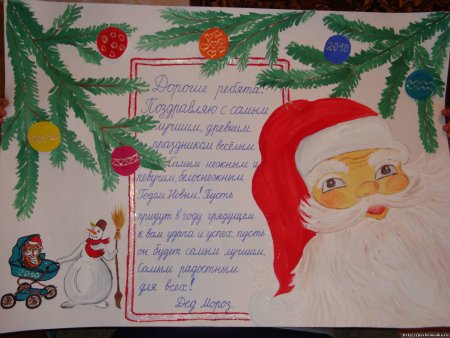 2010
Дорогие ребята!
Поздравляю с самым
лучшим, древним
праздником весёлым
Самым нежным и
певучим, белоснежным
Годом Новым! Пусть
придут в году грядущем
к вам удача и успех, пусть
он будет самым лучшим,
Самым радостным
для всех!
Дед Мороз.